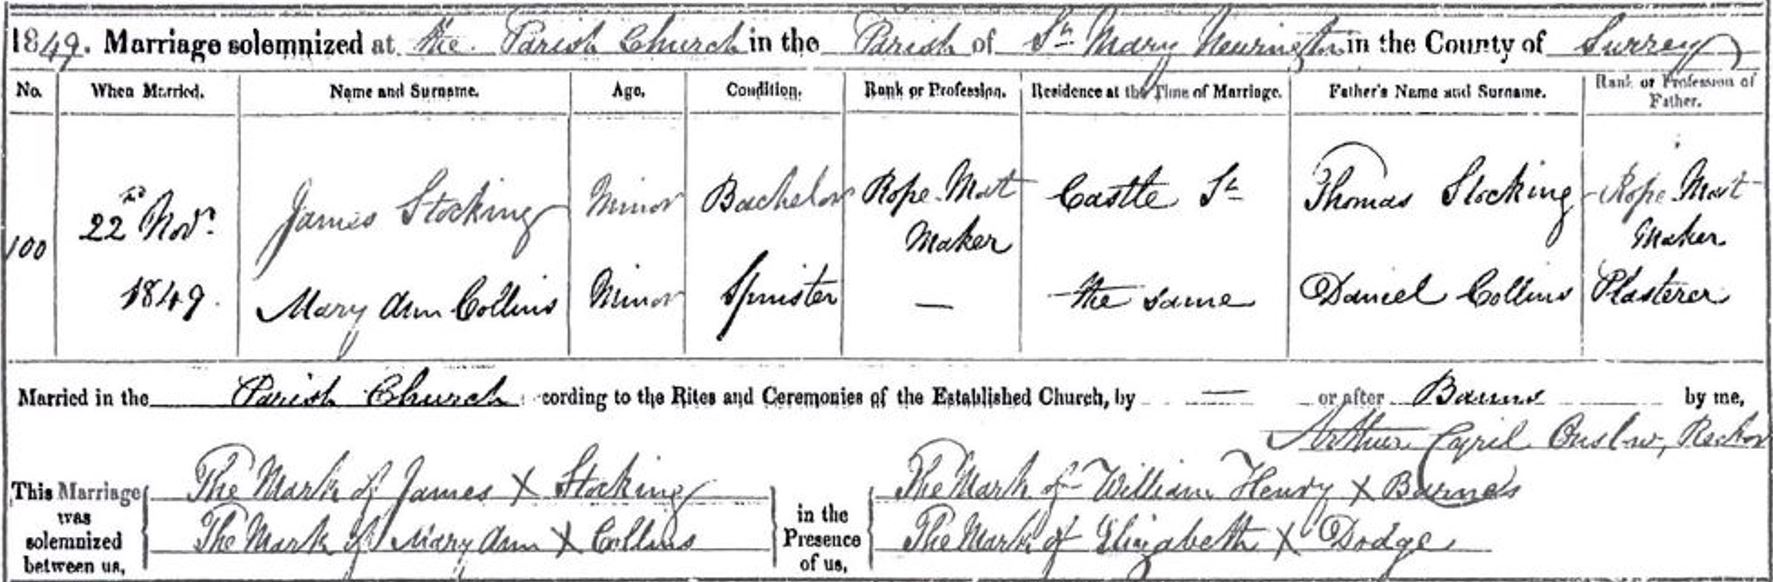 1849. Marriage solemnized at the Parish Church in the Parish of St. Mary Newington in the County of Surrey
No. When Married. Name and Surname. Age. Condition. Rank or Profession. Residence at the Time of Marriage. Father's Name and Surname. Rank or Profession of Father.
100 22nd Novr. 1849. James Stocking Minor Bachelor Rope Mat Maker Castle St. Thomas Stocking Rope Mat Maker
Mary Ann Collins Minor Spinster — the same Daniel Collins Plasterer
Married in the Parish Church cording to the Rites and Ceremonies of the Established Church, by — or after Banns by me,
Arthur Cyril Onslow, Rector
This Marriage was solemnized between us, The Mark of James X Stocking in the Presence of us, The Mark of William Henry X Barnes
The Mark of Mary Ann X Collins The Mark of Elizabeth X Dodge